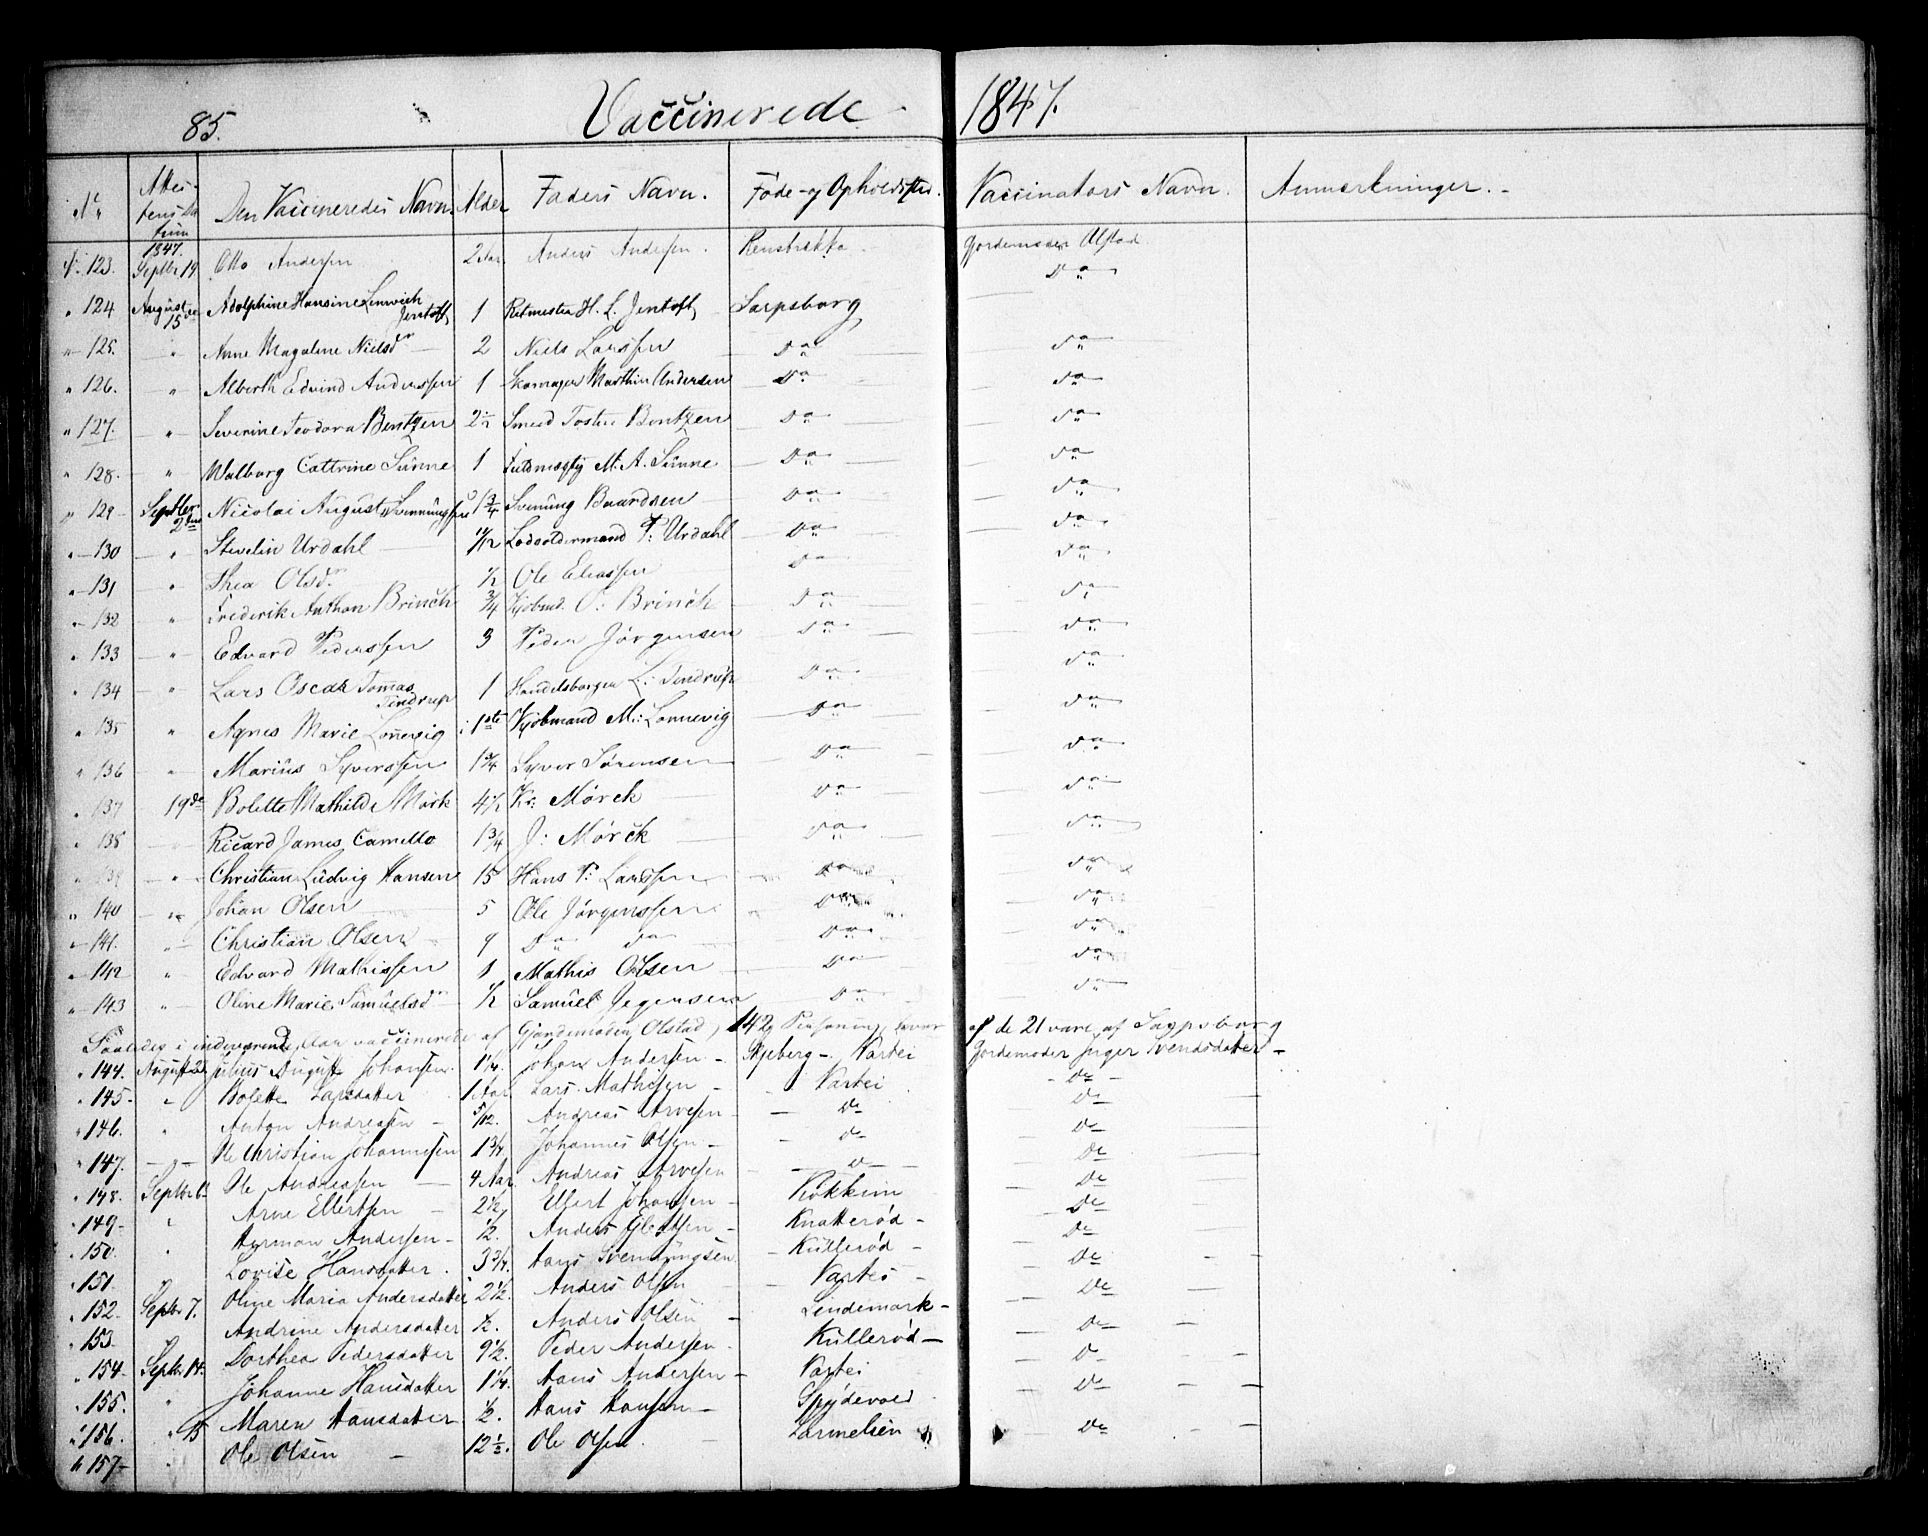 85. Vaccinerede 1847.
No Attestens Datum Den Vaccineredes Navn. Alder Faders Navn. Føde- og Opholdssted. Vaccinators Navn. Anmærkninger.
1847.
123. Septbr 19 Otto Andersen 2 Aar Anders Andersen. Gjordemoder Olstad
124 August 15de Adolphine Hansine Jentoft 1 Ritmester H. L. Jentoft Sarpsborg Do
125. " Anne Magaline Nielsdr 2 Niels Larssen Do Do
126. " Alberth Edvind Anderssen 1 Skomager Marthin Andersen Do Do
127. " Severine Teodora Bentzen 2½ Smed Bentzen Do Do
128. " Walborg Cattrine Sünne 1 M. A. Sünne Do Do
129 Septbr 2den Nicolai August Svennüngsen 1¾ Svenüng Baardsen Do Do
130 " Stevelin Urdahl 11/12 P: Urdahl Do Do
131 " Thea Olsdr ½ Ole Eliassen Do Do
132 " Frederik Anthon Brinch ¾ Kjøbmd. O: Brinch Do Do
133 " Edvard Pederssen 3 Peder Jørgensen Do Do
134 " Lars Oscar Tomas Dindrup 1 Handelsborger L: Dindrup Do Do
135 " Agnes Marie Lonnevig i 1ste Kjøbmand M: Lonnevig Do Do
136 " Marius Syverssen 1¾ Syver Sørensen Do Do
137 19de Bolette Mathilde Mørk 4½ Kr: Mörck Do Do
138 " Ricard James Camello 1¾ J: Mörck Do Do
139 " Christian Lüdvig Hansen 15 Hans P: Larssen Do Do
140 " Johan Olsen 5 Ole Jørgenssen Do Do
141. " Christian Olsen 9 Do Do Do Do
142 " Edvard Mathissen 1 Mathis Olsen Do Do
143 " Oline Marie Samuelsdr ½ Samüel Do Do
Saaledes i indeværende Aar vaccinerede af Gjordemoder Olstad, 142 Personer, hvor af de 21 vare af Sarpsborg
144. August Julius August Johansen. 1¼ Johan Andersen Skjeberg - Vartei Gordemoder Inger Svendsdatter
145. " Bolette Larsdatter 1 Aar Lars Mathisen Vartei Do
146. " Anton Andreasen 5/12. Andreas Arvesen Do Do
147. " Ole Christian Johannesen 1¾ Johannes Olsen Do Do
148. Septbr 6. Ole Andreasen 4 Aar Andreas Arvesen Do Do
149. " Arne Ellertsen 2½ Ellert Johansen Do
150. " Herman Andersen ½. Anders Knatterød Do
151. Lovise Hansdatter. 3¾. Hans Svenningsen Küllerød Do
152. Septbr 7. Oline Maria Andersdatter 2½. Anders Olsen Vartei Do
153. Andrine Andersdatter ½. Anders Olsen Lindemark Do
154. Septbr 14. Dorthea Pedersdatter 9½. Peder Andersen. Küllerød Do
155. " Johanne Hansdatter 1¼. Hans Andersen Vartei Do
156. " 15 Maren Hansdatter ½. Hans Hansen Spydevold Do
157 " Ole Olsen 12½. Ole Olsen Do